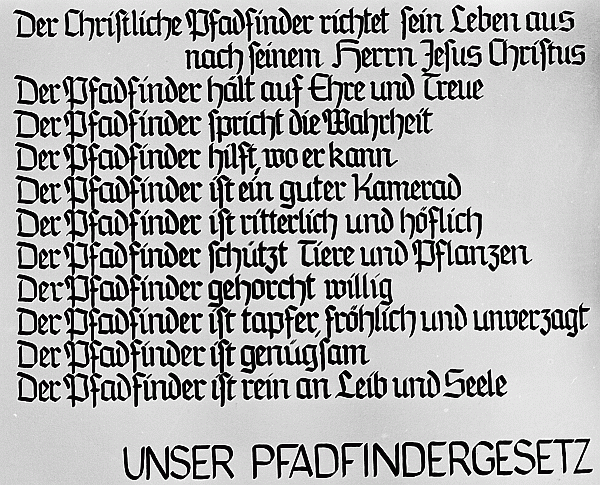 Der Christliche Pfadfinder richtet sein Leben aus
nach seinem Herrn Jesus Christus
Der Pfadfinder hält auf Ehre und Treue
Der Pfadfinder spricht die Wahrheit
Der Pfadfinder hilft, wo er kann
Der Pfadfinder ist ein guter Kamerad
Der Pfadfinder ist ritterlich und höflich
Der Pfadfinder schützt Tiere und Pflanzen
Der Pfadfinder gehorcht willig
Der Pfadfinder ist tapfer, fröhlich und unverzagt
Der Pfadfinder ist genügsam
Der Pfadfinder ist rein an Leib und Seele
UNSER PFADFINDERGESETZ